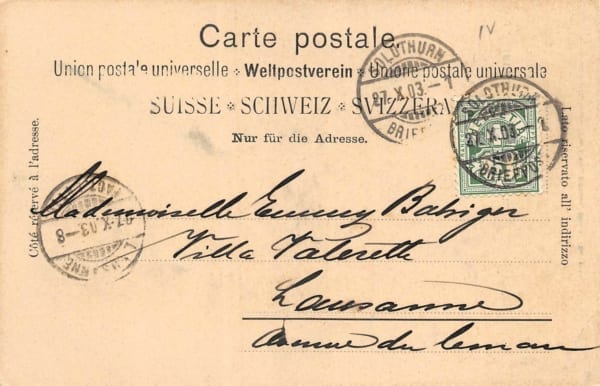 IV
Carte postale.
Union postale universelle * Weltpostverein * Unione postale universale
SUISSE * SCHWEIZ * SVIZZERA
Nur für die Adresse.
Côté réservé à l'adresse.
Lato riservato all' indirizzo
SOLOTHURN
27.X.03.-7
BRIEF
SOLOTHURN
27.X.03.
BRIEF
27.X.03.-8
Mademoiselle Emmy
Villa Valerette
Lausanne
Avenue du Leman